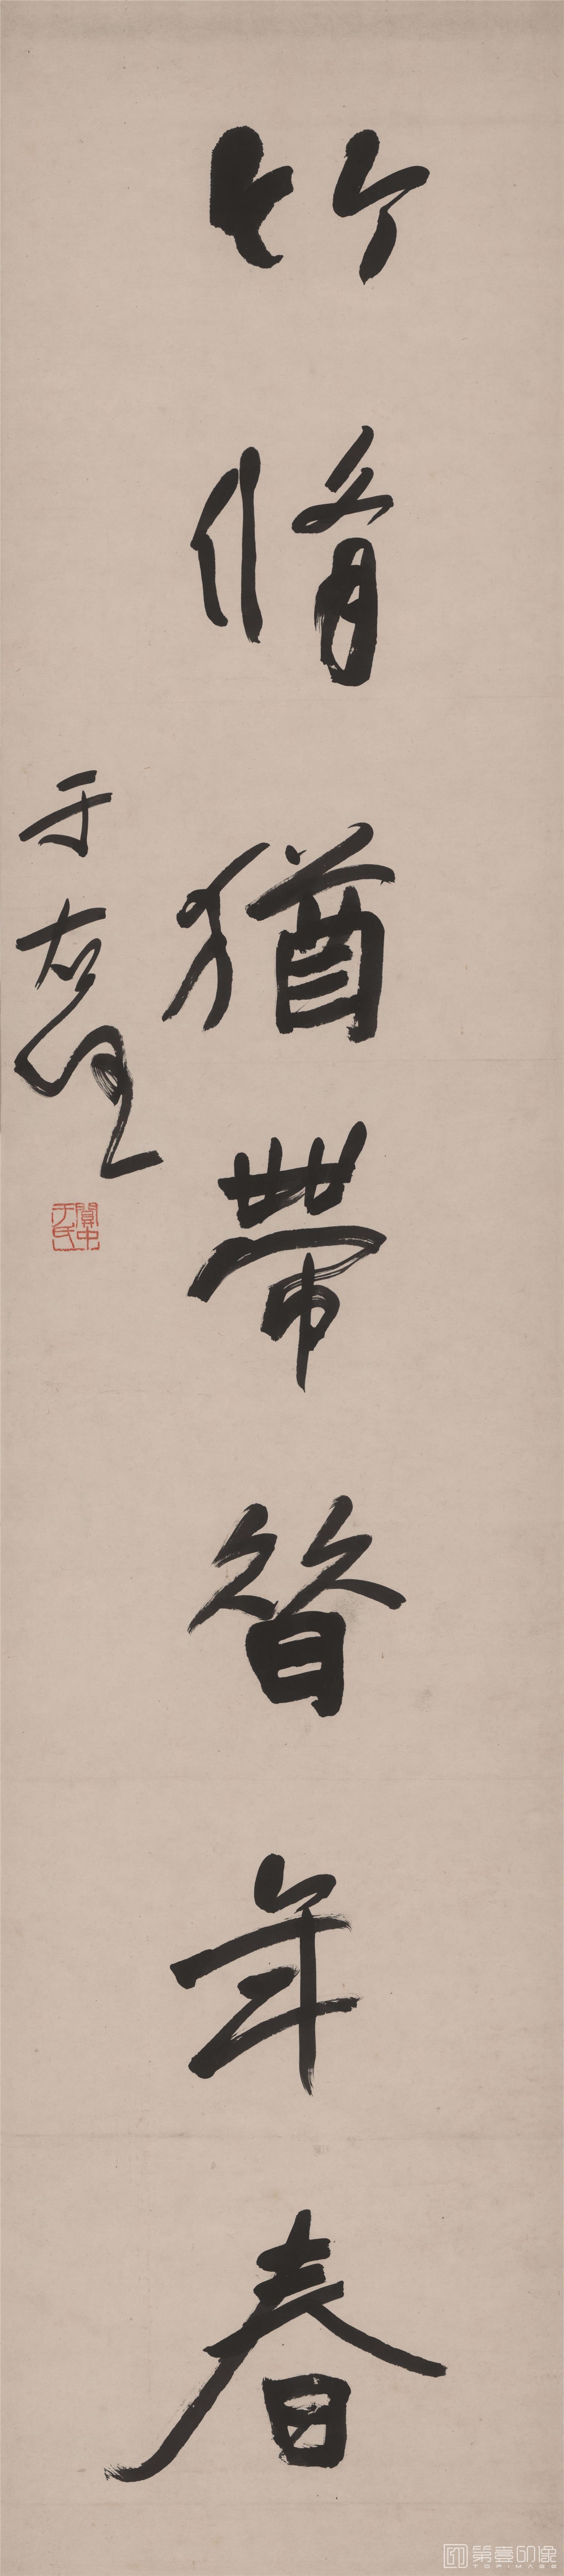 竹脩猶帶昔年春
于右任
關中
于氏
第壹印像
TOP·IMAGE